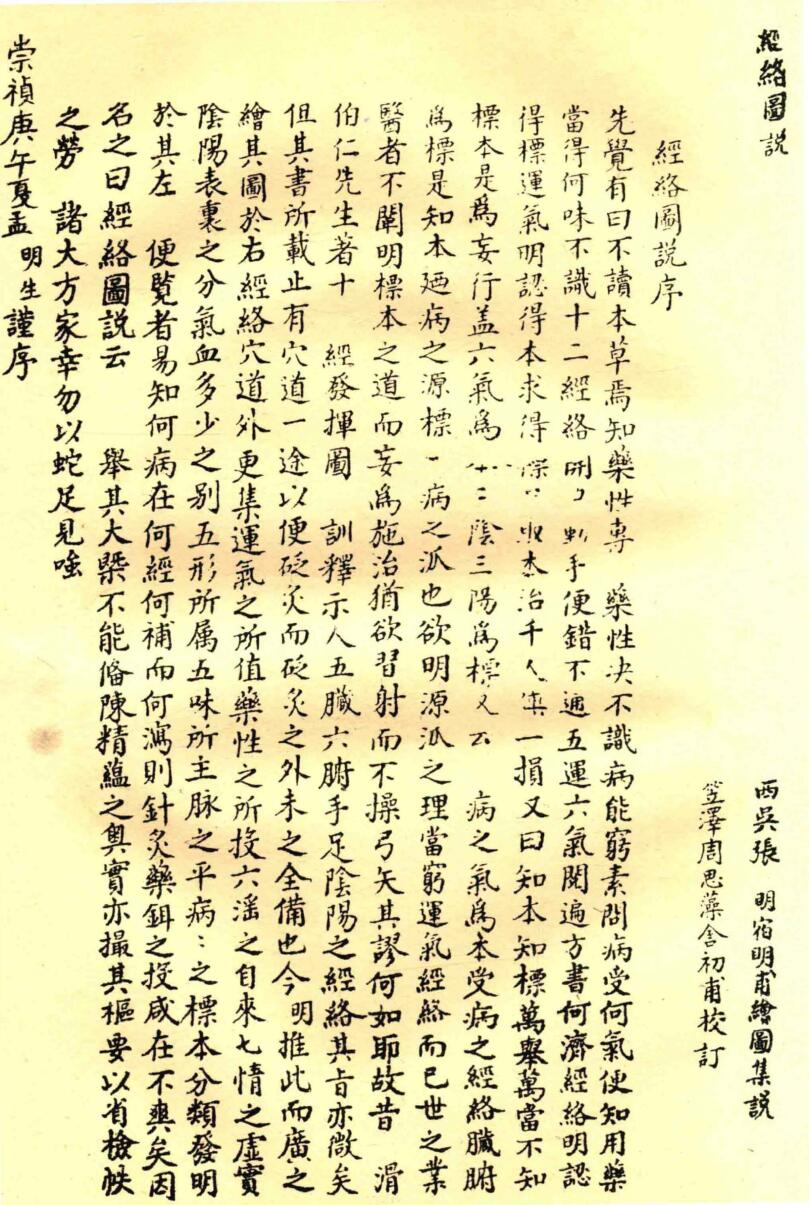 經絡圖説
西吳張 明宿明甫繪圖集説
笠澤周思藻含初甫校訂
經絡圖説序
先覺有曰不讀本草焉知藥性專 藥性决不識病能窮素問病受何氣便知用藥
當得何味不識十二經絡開 手便錯不通五運六氣閱遍方書何濟經絡明認
得標運氣明認得本求得 本治千人 一損又曰知本知標萬舉萬當不知
標本是爲妄行盖六氣爲 三陰三陽爲標又云 病之氣爲本受病之經絡臟腑
爲標是知本廼病之源標 病之派也欲明源派之理當窮運氣經絡而已世之業
醫者不闡明標本之道而妄爲施治猶欲習射而不操弓矢其謬何如耶故昔 滑
伯仁先生著十 經發揮圖 訓釋示人五臟六腑手足陰陽之經絡其旨亦微矣
但其書所載止有穴道一途以便砭灸而砭灸之外未之全備也今 明推此而廣之
繪其圖於右經絡穴道外更集運氣之所值藥性之所投六淫之自來七情之虛實
陰陽表裏之分氣血多少之别五形所属五味所主脉之平病:之標本分類發明
於其左 便覧者易知何病在何經何補而何瀉則針灸藥餌之投咸在不爽矣因
名之曰經絡圖説云 舉其大槩不能俻陳精蘊之奥實亦撮其樞要以省檢帙
之勞 諸大方家幸勿以蛇足見嗤
崇禎庚午夏孟 明生謹序